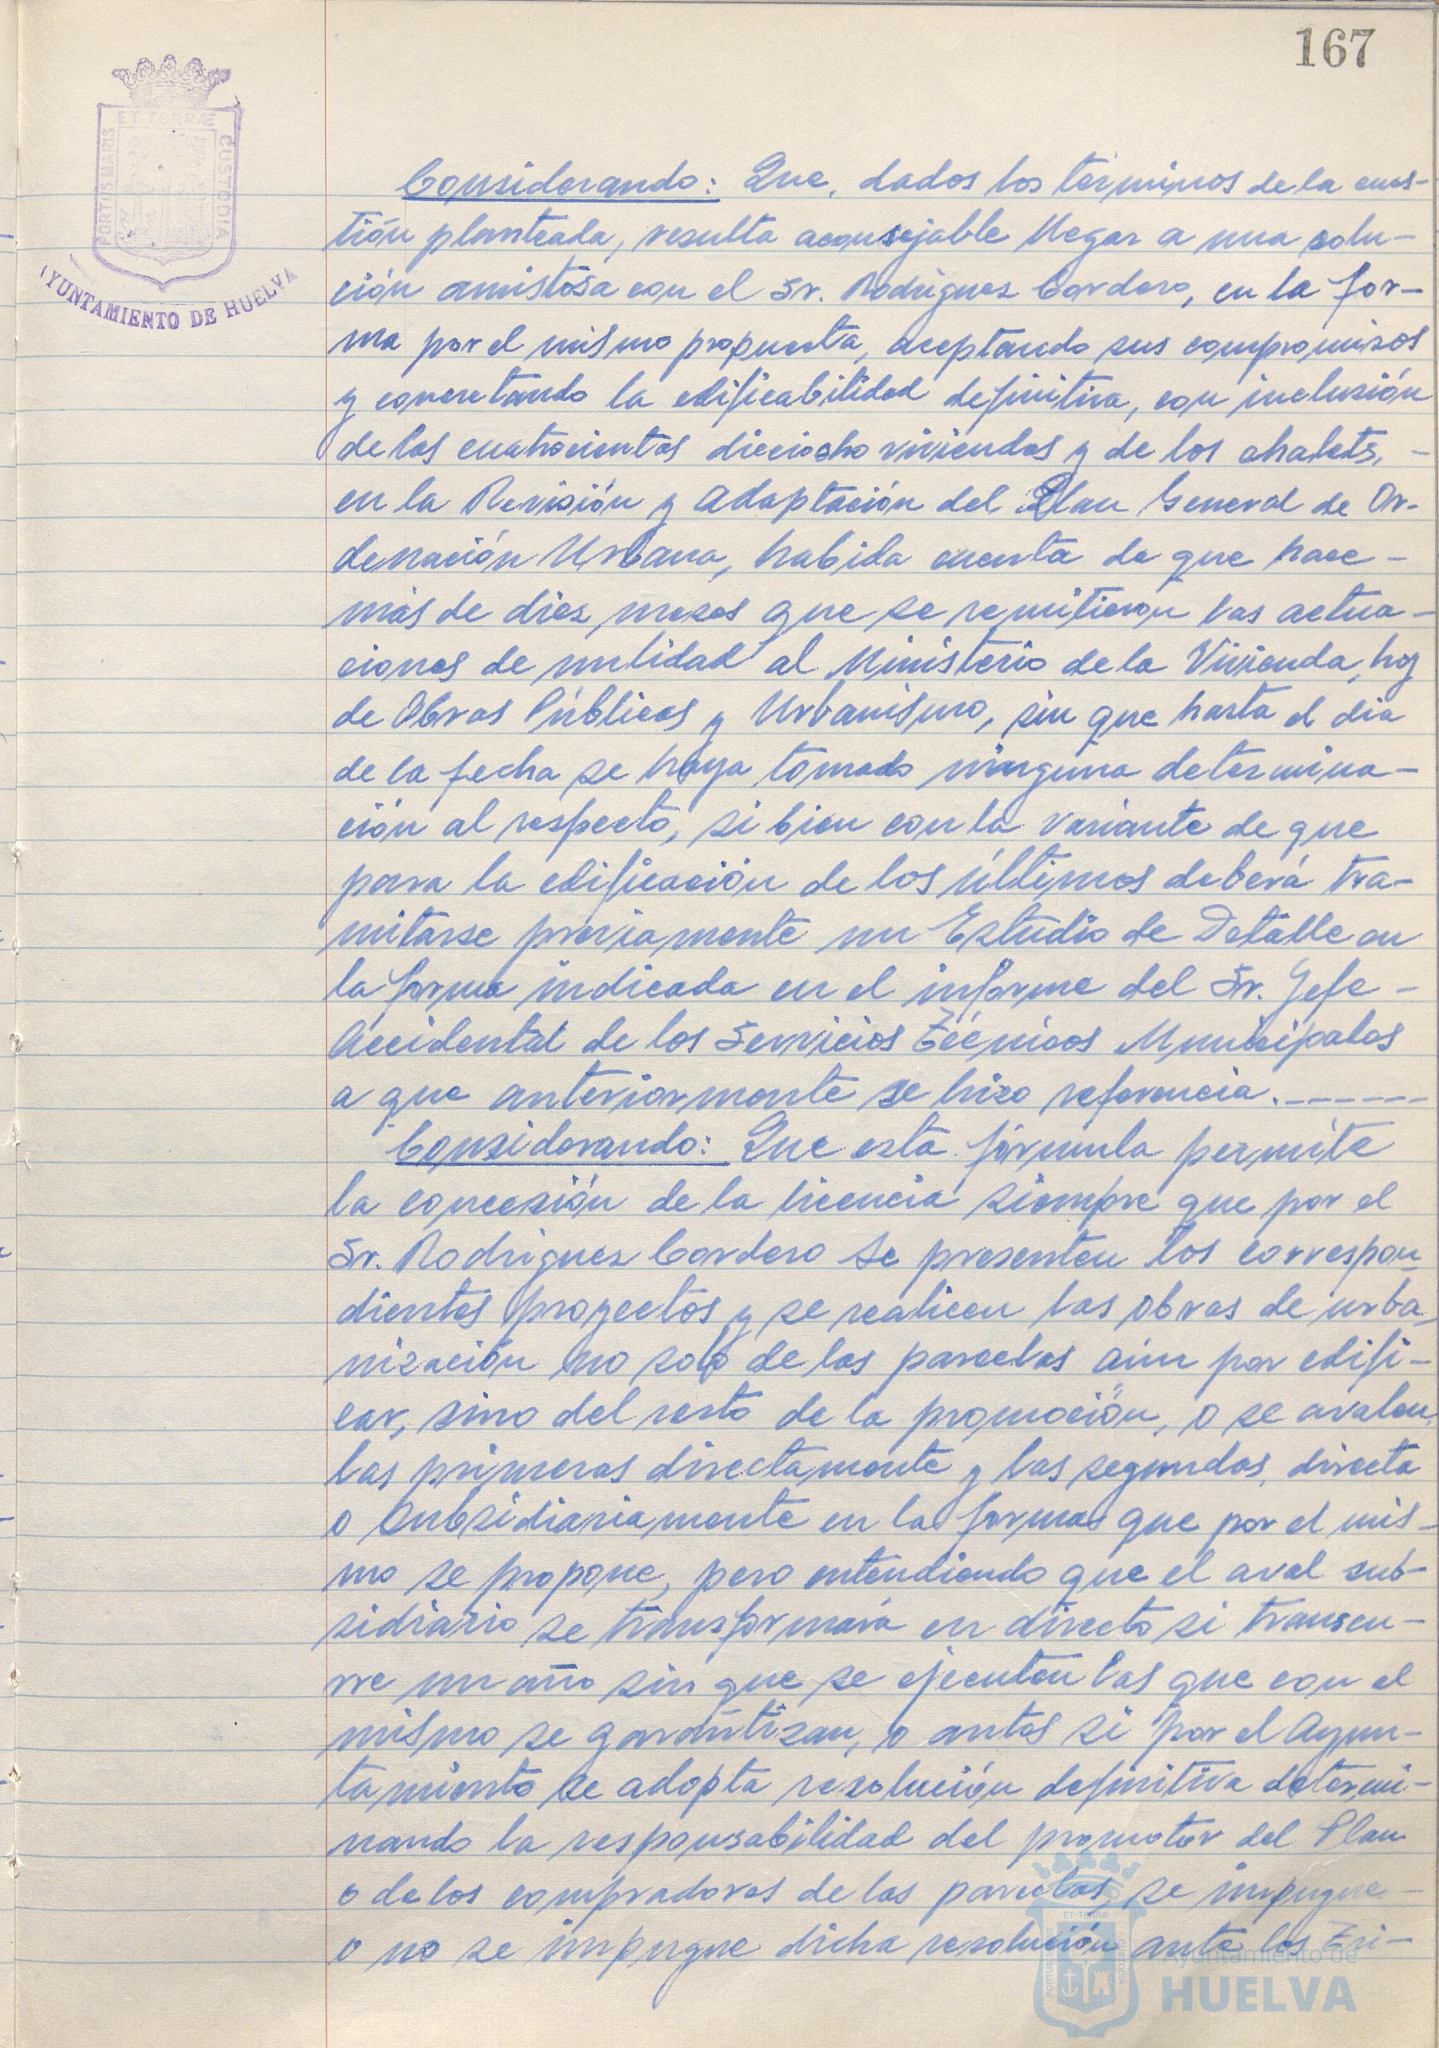 167
ET TERRÆ
PORTUS MARIS
CUSTODIA
AYUNTAMIENTO DE HUELVA
Considerando: Que, dados los términos de la cues-
tión planteada, resulta aconsejable llegar a una solu-
ción amistosa con el Sr. Rodríguez Cordero, en la for-
ma por el mismo propuesta, aceptando sus compromisos
y concretando la edificabilidad definitiva, con inclusión
de las cuatrocientas dieciocho viviendas y de los chalets, -
en la Revisión y Adaptación del Plan General de Or-
denación Urbana, habida cuenta de que hace -
más de diez meses que se remitieron las actua-
ciones de nulidad al Ministerio de la Vivienda, hoy
de Obras Públicas y Urbanismo, sin que hasta el dia
de la fecha se haya tomado ninguna determina-
ción al respecto, si bien con la variante de que
para la edificación de los últimos deberá tra-
mitarse previamente un Estudio de Detalle en
la forma indicada en el informe del Sr. Jefe -
Accidental de los Servicios Técnicos Municipales
a que anteriormente se hizo referencia. ------
Considerando: Que esta fórmula permite
la concesión de la licencia siempre que por el
Sr. Rodríguez Cordero se presenten los correspon-
dientes proyectos y se realicen las obras de urba-
nización no solo de las parcelas aún por edifi-
car, sino del resto de la promoción, o se avalen
las primeras directamente y las segundas, directa
o subsidiariamente en la formas que por el mis-
mo se propone, pero entendiendo que el aval sub-
sidiario se transformará en directo si transcu-
rre un año sin que se ejecuten las que con el
mismo se garantizan, o antes si por el Ayun-
tamiento se adopta resolución definitiva determi-
nando la responsabilidad del promotor del Plan
o de los compradores de las parcelas, se impugne -
o no se impugne dicha resolución ante los Tri-
Ayuntamiento de
HUELVA